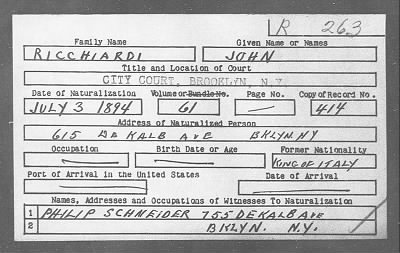 R 263
Family Name Given Name or Names
RICCHIARDI JOHN
Title and Location of Court
CITY COURT, BROOKLYN, N.Y
Date of Naturalization Volume or Bundle No. Page No. Copy of Record No.
JULY 3 1894 61 — 414
Address of Naturalized Person
615 DE KALB AVE BKLYN. NY
Occupation Birth Date or Age Former Nationality
KING OF ITALY
Port of Arrival in the United States Date of Arrival
Names, Addresses and Occupations of Witnesses To Naturalization
1 PHILIP SCHNEIDER 755 DEKALB AVE
2 BKLYN. N.Y.